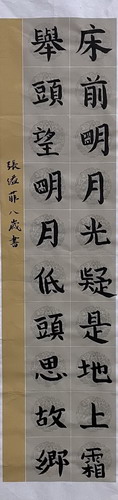 床前明月光疑是地上霜
舉頭望明月低頭思故鄉
張菲八歲書